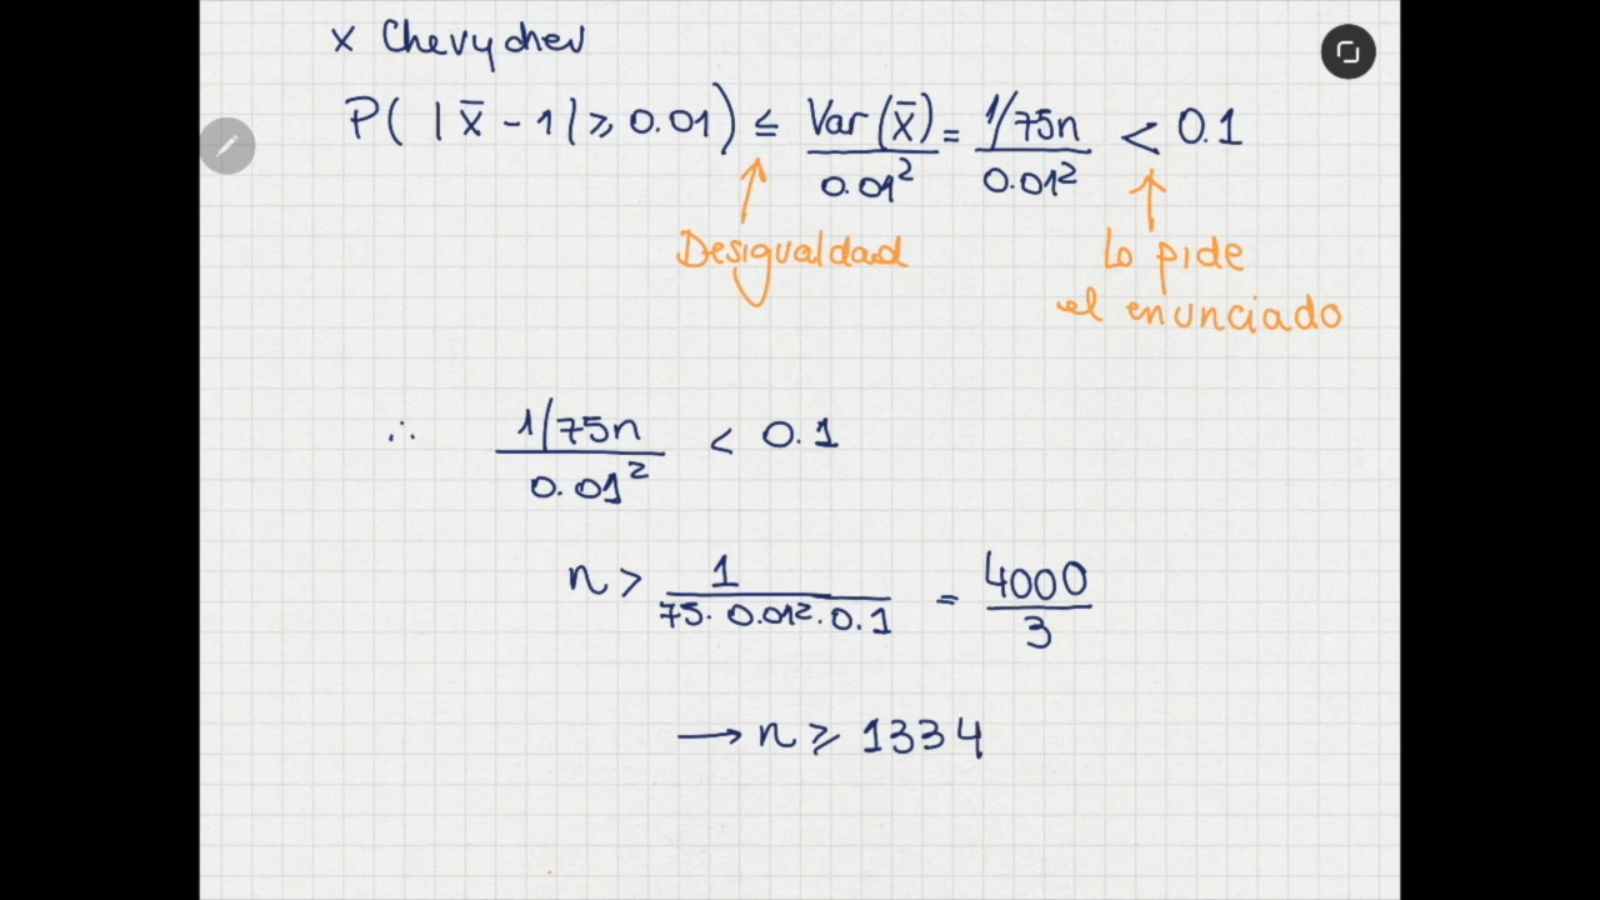 x Chevychev
P( |x̄ - 1| ≥ 0.01) ≤ Var(x̄)/0.01² = 1/75n/0.01² < 0.1
Desigualdad
Lo pide
el enunciado
∴ 1/75n/0.01² < 0.1
n > 1/75·0.01²·0.1 = 4000/3
→ n ≥ 1334